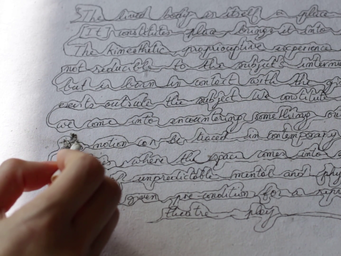 The lived body is itself a place
It constitutes place brings it into
The kinesthetic proprioceptive experience
not reducible to the subject's
but is born in contact with the
exists outside the subject we constitute
we come into encountering something
notion can be traced in contemporary
where the space comes into
unpredictable mental and
given pre-condition for a
theatre play